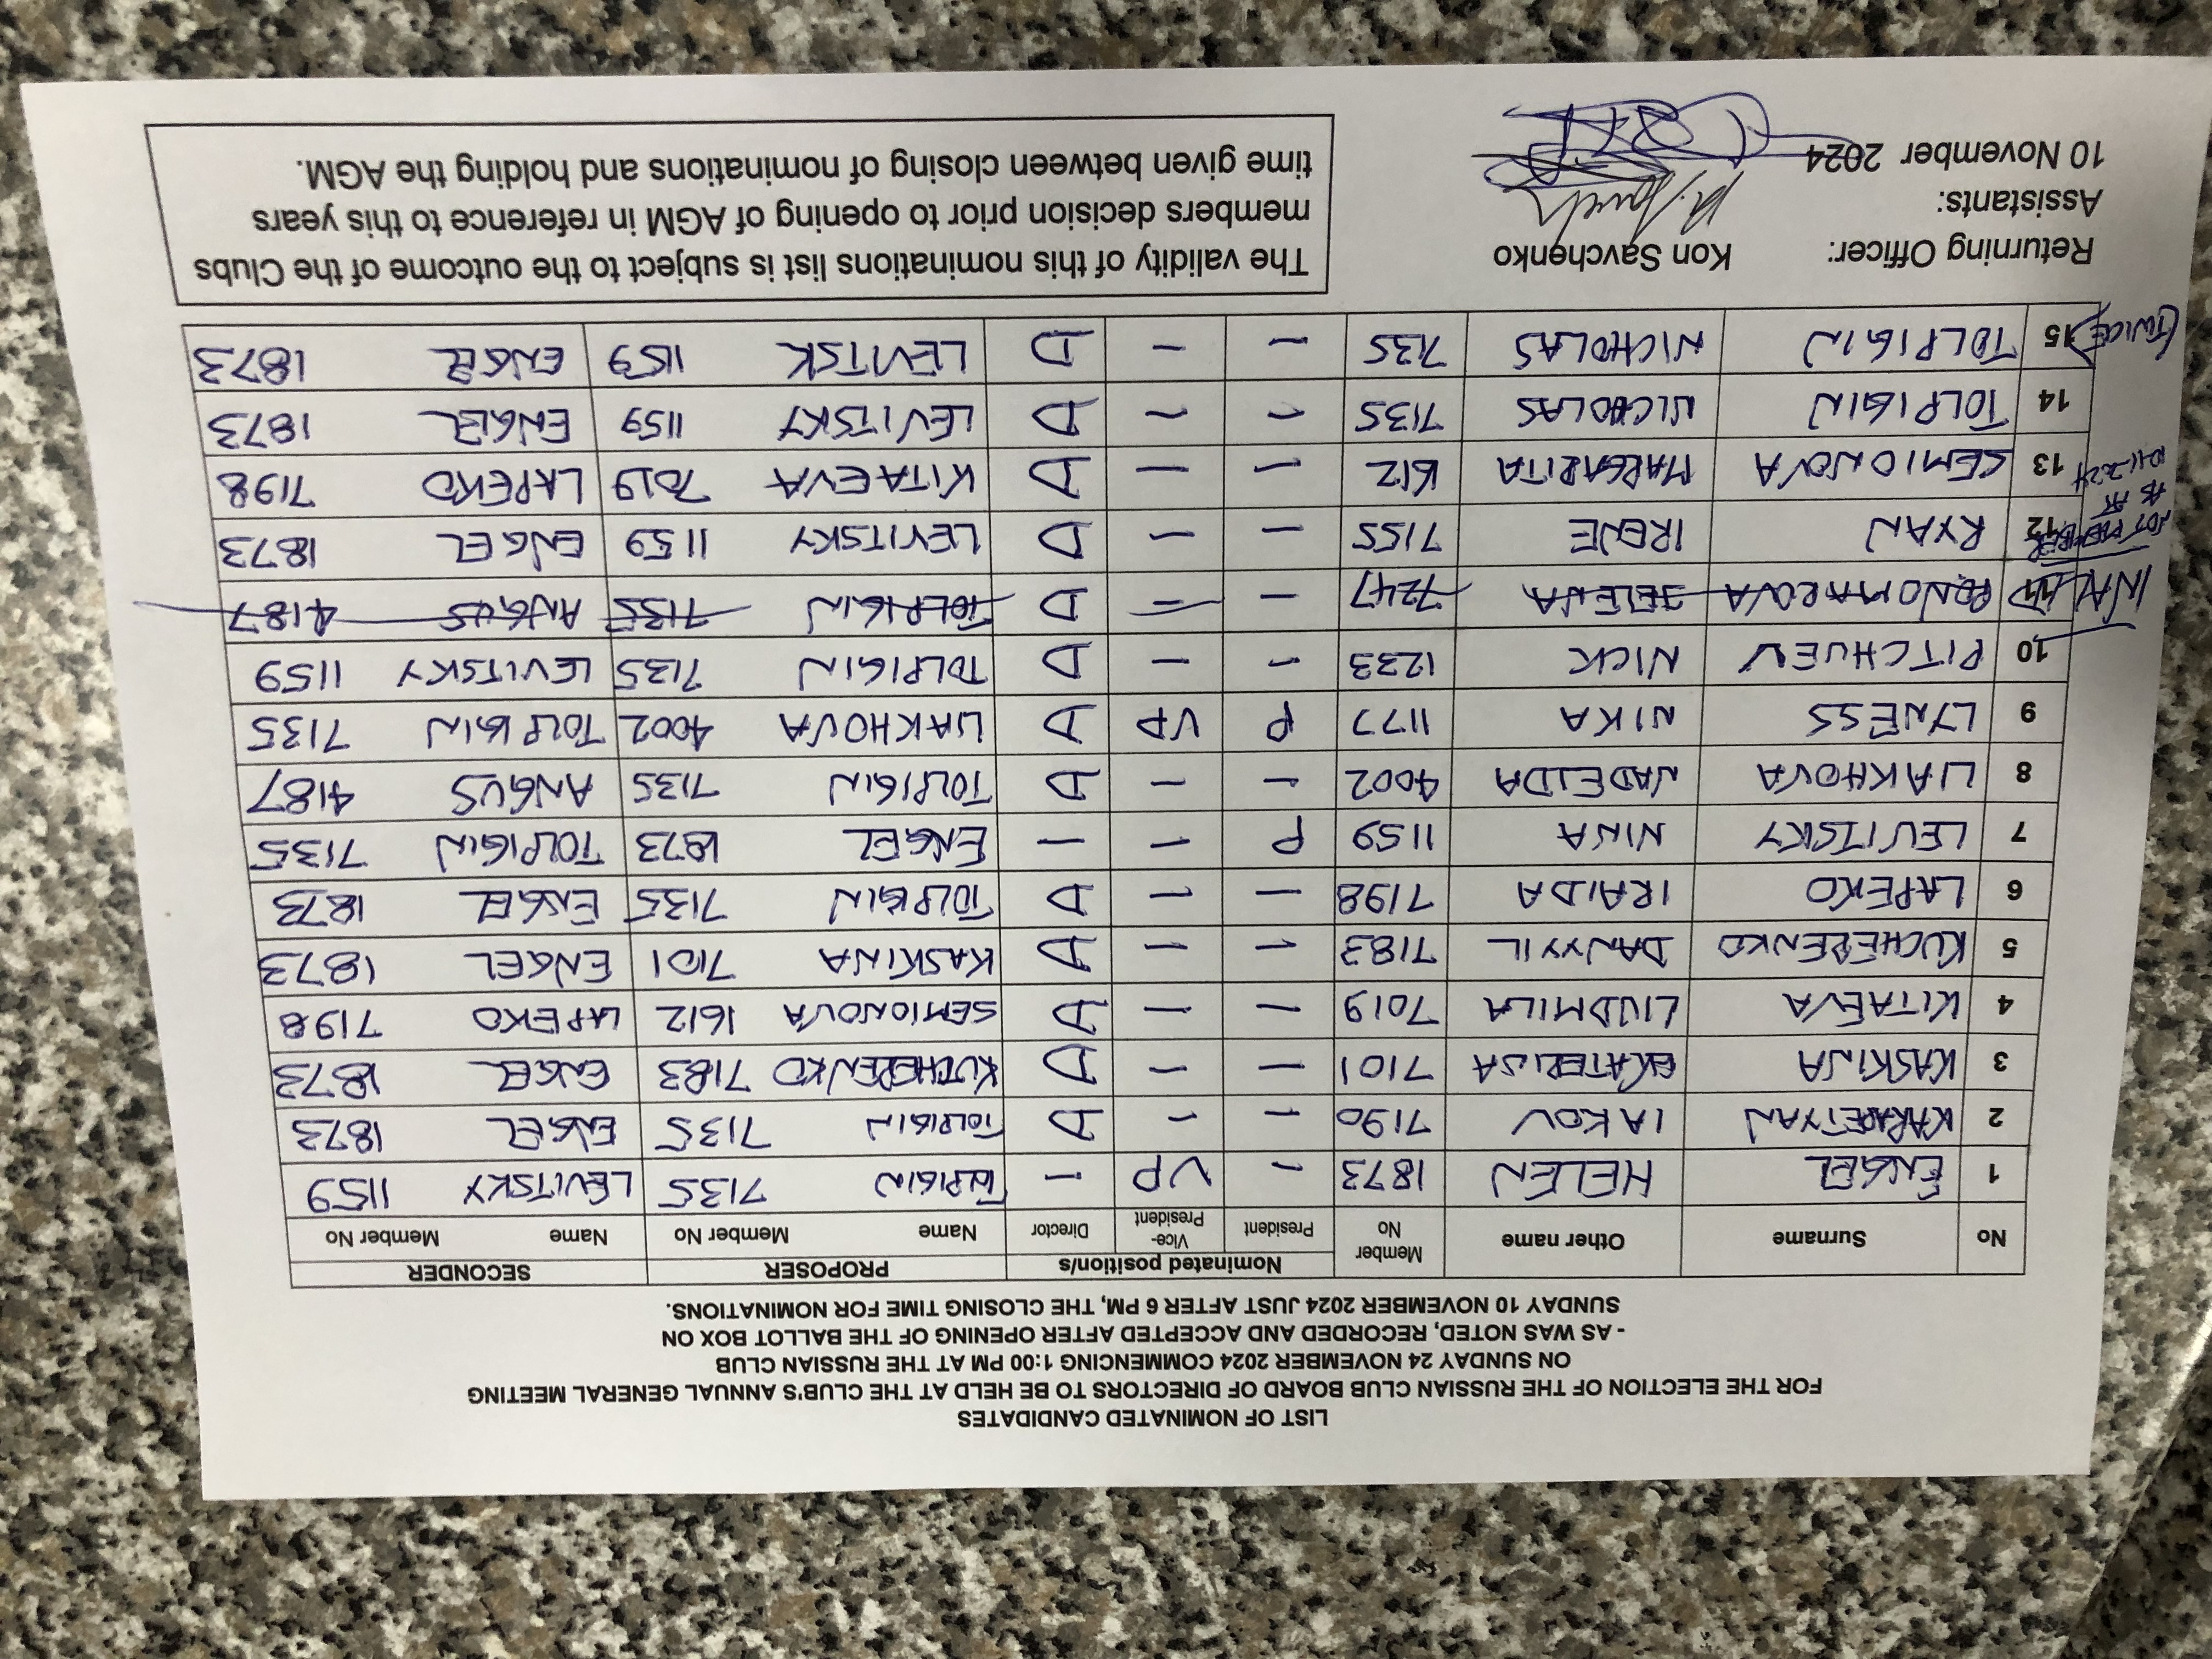 LIST OF NOMINATED CANDIDATES
FOR THE ELECTION OF THE RUSSIAN CLUB BOARD OF DIRECTORS TO BE HELD AT THE CLUB'S ANNUAL GENERAL MEETING
ON SUNDAY 24 NOVEMBER 2024 COMMENCING 1:00 PM AT THE RUSSIAN CLUB
- AS WAS NOTED, RECORDED AND ACCEPTED AFTER OPENING OF THE BALLOT BOX ON
SUNDAY 10 NOVEMBER 2024 JUST AFTER 6 PM, THE CLOSING TIME FOR NOMINATIONS.
Nominated position/s PROPOSER SECONDER
No Surname Other name Member No President Vice-President Director Name Member No Name Member No
1 ENGEL HELEN 1873 - VP - TOLPIGIN 7135 LEVITSKY 1159
2 KARAPETYAN IAKOV 7190 - - D TOLPIGIN 7135 ENGEL 1873
3 KASKINA EKATERINA 7101 - - D KUTCHERENKO 7183 ENGEL 1873
4 KITAEVA LIUDMILA 7019 - - D SEMIONOVA 1612 LAPEKO 7198
5 KUCHERENKO DANYYIL 7183 - - D KASKINA 7101 ENGEL 1873
6 LAPEKO IRAIDA 7198 - - D TOLPIGIN 7135 ENGEL 1873
7 LEVITSKY NINA 1159 P - - ENGEL 1873 TOLPIGIN 7135
8 LIAKHOVA NADEIDA 4002 - - D TOLPIGIN 7135 ANGUS 4187
9 LYNESS NIKA 1177 P VP D LIAKHOVA 4002 TOLPIGIN 7135
10 PITCHUEV NICK 1233 - - D TOLPIGIN 7135 LEVITSKY 1159
INVALID 11 PONOMAROVA JELENA 7247 - - D TOLPIGIN 7135 ANGUS 4187
NOT MEMBER AS AT 10-11-2024
12 RYAN IRENE 7155 - - D LEVITSKY 1159 ENGEL 1873
13 SEMIONOVA MARGARITA 1612 - - D KITAEVA 7019 LAPEKO 7198
14 TOLPIGIN NICHOLAS 7135 - - D LEVITSKY 1159 ENGEL 1873
(TWICE) 15 TOLPIGIN NICHOLAS 7135 - - D LEVITSK 1159 ENGEL 1873
Returning Officer: Kon Savchenko
Assistants:
10 November 2024
The validity of this nominations list is subject to the outcome of the Clubs
members decision prior to opening of AGM in reference to this years
time given between closing of nominations and holding the AGM.